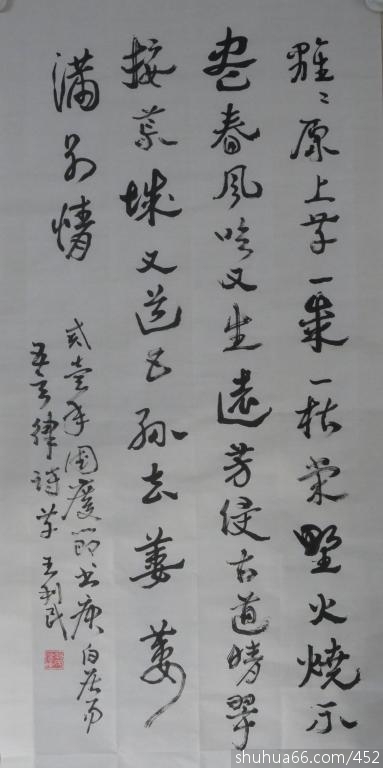 離々原上草一歲一枯榮野火燒不
盡春風吹又生遠芳侵古道晴翠
接荒城又送王孫去萋萋
滿別情
貳壹年國慶節書唐白居易
五言律詩草 王利民
shuhua66.com/452